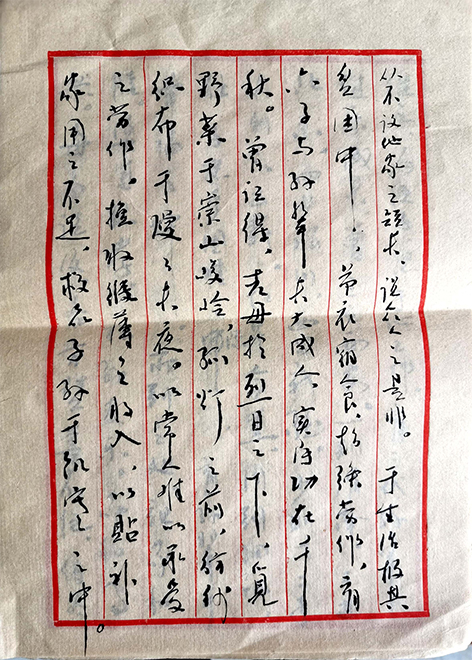 从不议他家之短长、说众人之是非。 于生活极其
贫困中、节衣宿食、劳作、育
六子与孙辈长大成人、实功在千
秋。曾记得、老母於烈日之下、觅
野菜于崇山峻岭，孤灯之前，纺纱
织布于漫々长夜。以常人难以承受
之劳作。换取微薄之收入、以贴补
家用之不足、救众子孙于饥寒之中。